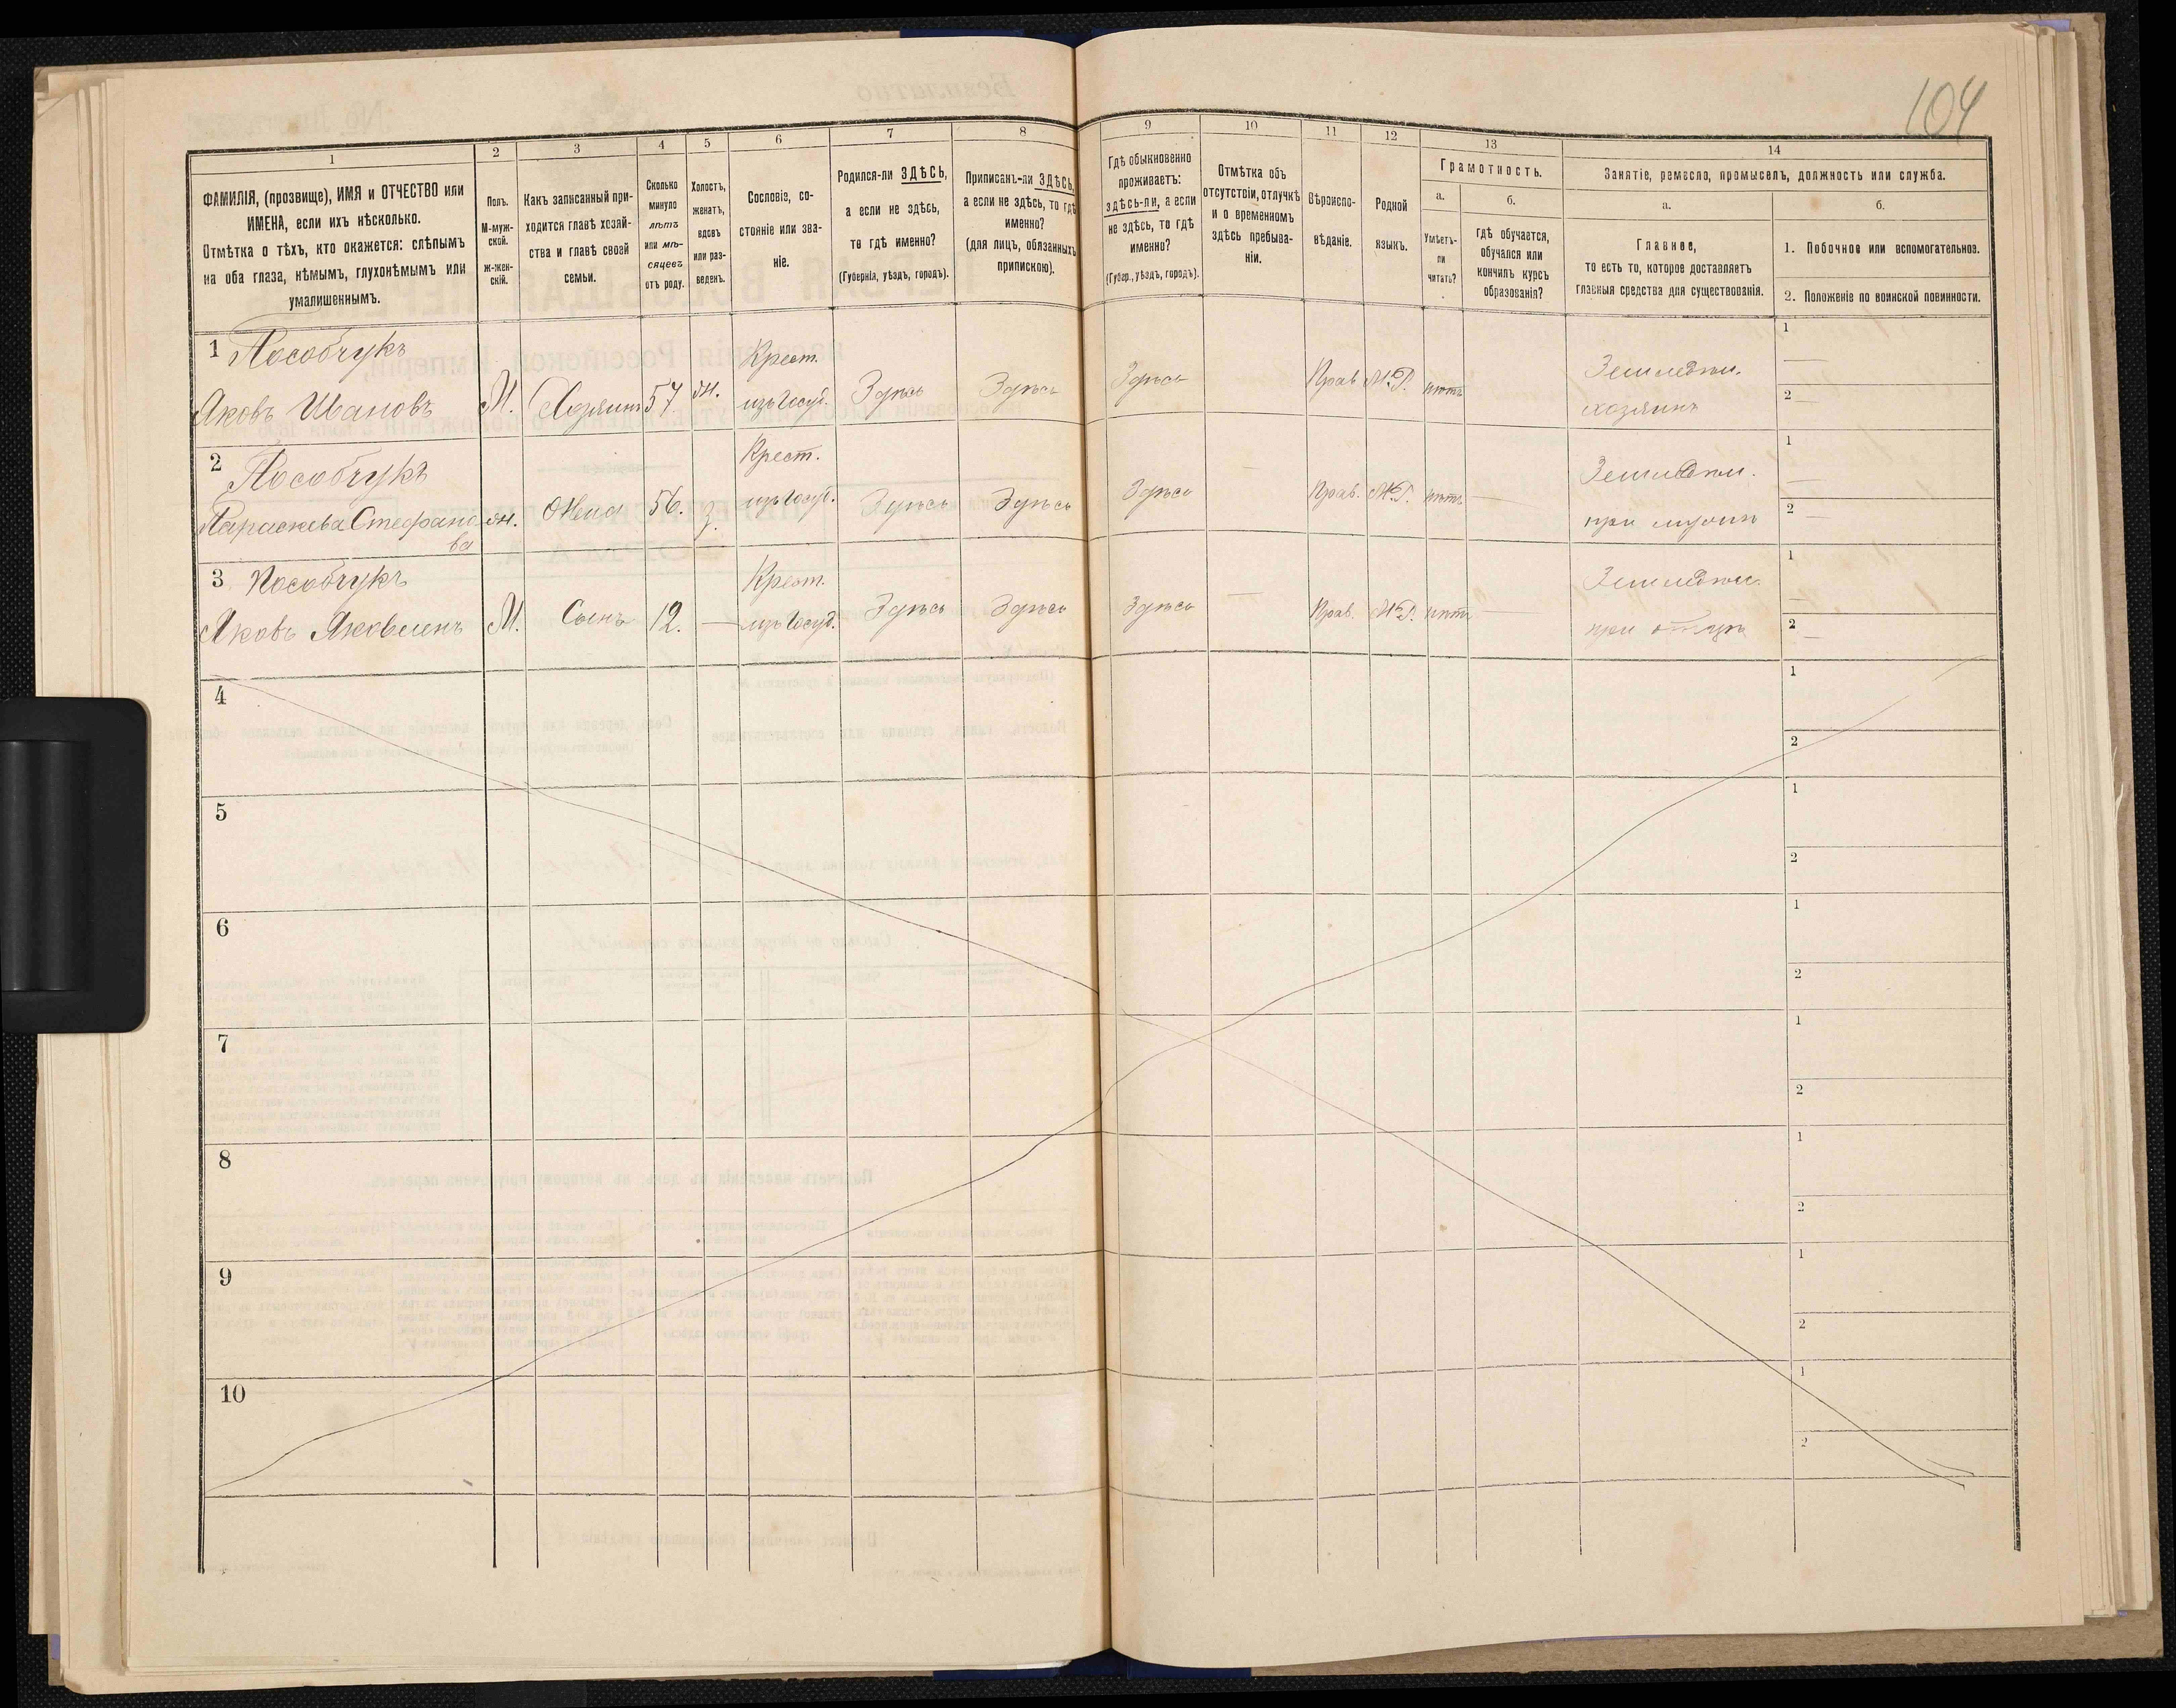 104
1
2
3
4
5
6
7
8
9
10
11
12
13
14
ФАМИЛІЯ, (прозвище), ИМЯ и ОТЧЕСТВО или
ИМЕНА, если ихъ нѣсколько.
Отмѣтка о тѣхъ, кто окажется: слѣпымъ
на оба глаза, нѣмымъ, глухонѣмымъ или
умалишеннымъ.
Полъ.
М-муж-
ской.
ж-жен-
скій.
Какъ записанный при-
ходится главѣ хозяй-
ства и главѣ своей
семьи.
Сколько
минуло
лѣтъ
или мѣ-
сяцевъ
отъ роду.
Холостъ,
женатъ,
вдовъ
или раз-
веденъ.
Сословіе, со-
стояніе или зва-
ніе.
Родился-ли ЗДѢСЬ,
а если не здѣсь,
то гдѣ именно?
(Губернія, уѣздъ, городъ).
Приписанъ-ли ЗДѢСЬ,
а если не здѣсь, то гдѣ
именно?
(для лицъ, обязанныхъ
припискою).
Гдѣ обыкновенно
проживаетъ:
здѣсь-ли, а если
не здѣсь, то гдѣ
именно?
(Губер., уѣздъ, городъ).
Отмѣтка объ
отсутствіи, отлучкѣ
и о временномъ
здѣсь пребыва-
ніи.
Вѣроиспо-
вѣданіе.
Родной
языкъ.
Грамотность.
а.
Умѣетъ-
ли
читать?
б.
гдѣ обучается,
обучался или
кончилъ курсъ
образованія?
Занятіе, ремесло, промыселъ, должность или служба.
а.
Главное,
то есть то, которое доставляетъ
главныя средства для существованія.
б.
1. Побочное или вспомогательное.
2. Положеніе по воинской повинности.
1 Пособчукъ
Яковъ Ивановъ
М.
Хозяинъ
57
ж.
Крест.
изъ Госуд.
Здѣсь
Здѣсь
Здѣсь
Прав
М.Р.
нѣтъ
Земледѣл.
хозяинъ
1
2
2 Пособчукъ
Параскева Стефано
ва
ж.
Жена
56.
з.
Крест.
изъ Госуд.
Здѣсь
Здѣсь
Здѣсь
Прав.
М.Р.
нѣтъ
Земледѣл.
при мужѣ
1
2
3 Пособчукъ
Яковъ Яковлевъ
М.
Сынъ
12.
Крест.
изъ Госуд.
Здѣсь
Здѣсь
Здѣсь
Прав.
М.Р.
нѣтъ
Земледѣл.
при отцѣ
1
2
4
1
2
5
1
2
6
1
2
7
1
2
8
1
2
9
1
2
10
1
2